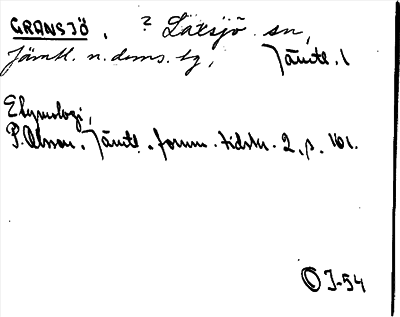 GRANSJÖ, ? Laxsjö sn,
Jämtl. n. doms. tg, Jämtl. l
Etymologi,
P. Olsson. Jämtl. fornm. tidskr. 2, s. 101.
O J-54